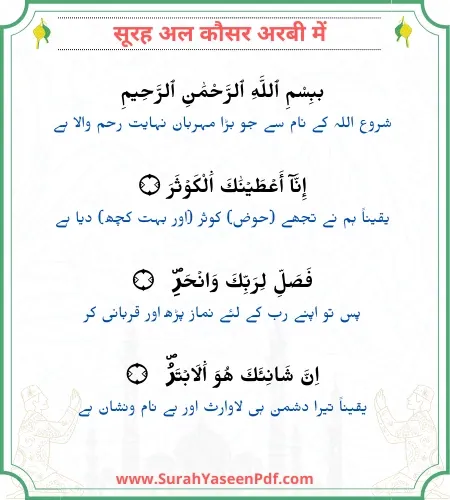 सूरह अल कौसर अरबी में
بِسْمِ ٱللَّهِ ٱلرَّحْمَٰنِ ٱلرَّحِيمِ
شروع اللہ کے نام سے جو بڑا مہربان نہایت رحم والا ہے
إِنَّآ أَعْطَيْنَٰكَ ٱلْكَوْثَرَ ۝
یقیناً ہم نے تجھے (حوض) کوثر (اور بہت کچھ) دیا ہے
فَصَلِّ لِرَبِّكَ وَانْحَرْؕ ۝
پس تو اپنے رب کے لئے نماز پڑھ اور قربانی کر
اِنَّ شَانِئَكَ هُوَ الْاَبْتَرُ ۝
یقیناً تیرا دشمن ہی لاوارث اور بے نام ونشان ہے
www.SurahYaseenPdf.com